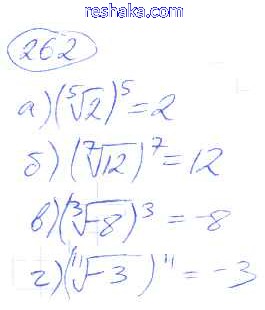 reshaka.com
262
а) (⁵√2)⁵ = 2
б) (⁷√12)⁷ = 12
в) (³√-8)³ = -8
г) (¹¹√-3)¹¹ = -3